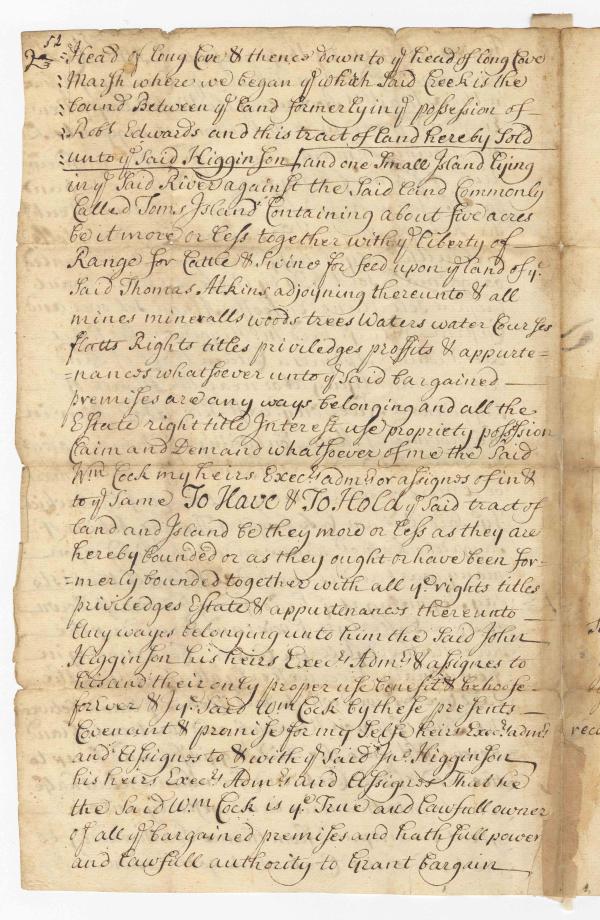 52
Head of long Cove & thence down to yͤ head of long Cove
Marsh where we began yͤ which Said Creek is the
bound Between yͤ land formerly in yͤ possession of
Robᵗ Edwards and this tract of land hereby Sold
unto yͤ Said Higginson and one Small Island lying
in yͤ Said River against the Said land Commonly
Called Toms Island Containing about five acres
be it more or less together with yͤ liberty of
Range for Cattle & Swine for feed upon yͤ land of yͤ
Said Thomas Atkins adjoyning thereunto & all
mines mineralls woods trees Waters water Courses
flatts Rights titles priviledges proffits & appurte=
=nances whatsoever unto yͤ Said bargained
premises are any ways belonging and all the
Estate right title Interest use propriety possession
Claim and Demand whatsoever of me the Said
Wm Cock my heirs Execʳˢ admʳˢ or assignes of in &
to yͤ Same To Have & To Hold yͤ Said tract of
land and Island be they more or less as they are
hereby bounded or as they ought or have been for=
=merly bounded together with all yͤ rights titles
priviledges Estate & appurtenances thereunto
Any ways belonging unto him the Said John
Higginson his heirs Execʳˢ Admʳˢ & assignes to
his and their only proper use benefit & behoofe
foriver & I yͤ Said Wm Cock by these presents
Covenant & promise for my Selfe heirs Execʳˢ admʳˢ
and Assignes to & with yͤ Said Jnᵒ Higginson
his heirs Execʳˢ Admʳˢ and Assignes That he
the Said Wm Cock is yͤ True and lawfull owner
of all yͤ bargained premises and hath full power
and lawfull authority to Grant bargain